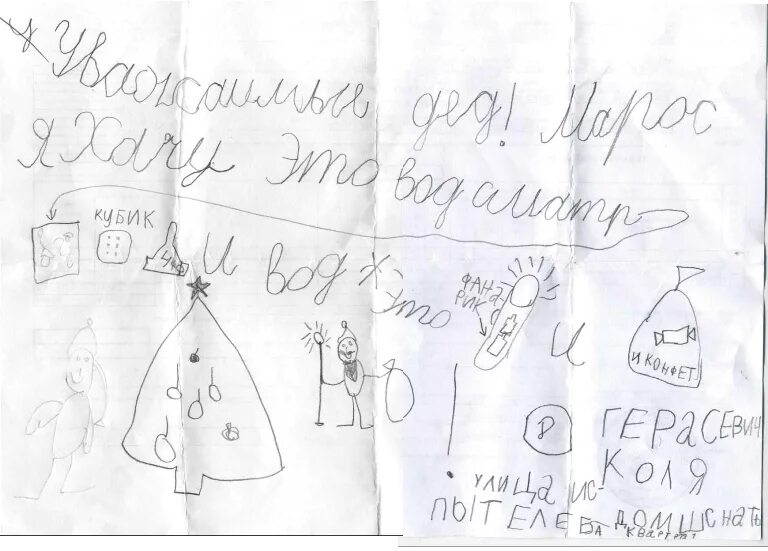 Уважаимые дед! Марос
я Хачу это вод сматри
КУБИК
и вод это
ФАНА
РИК
и
И КОНФЕТ
ГЕРАСЕВИЧ
КОЛЯ
УЛИЦА ИС-
ПЫТЕЛЕ
КВАРТРА